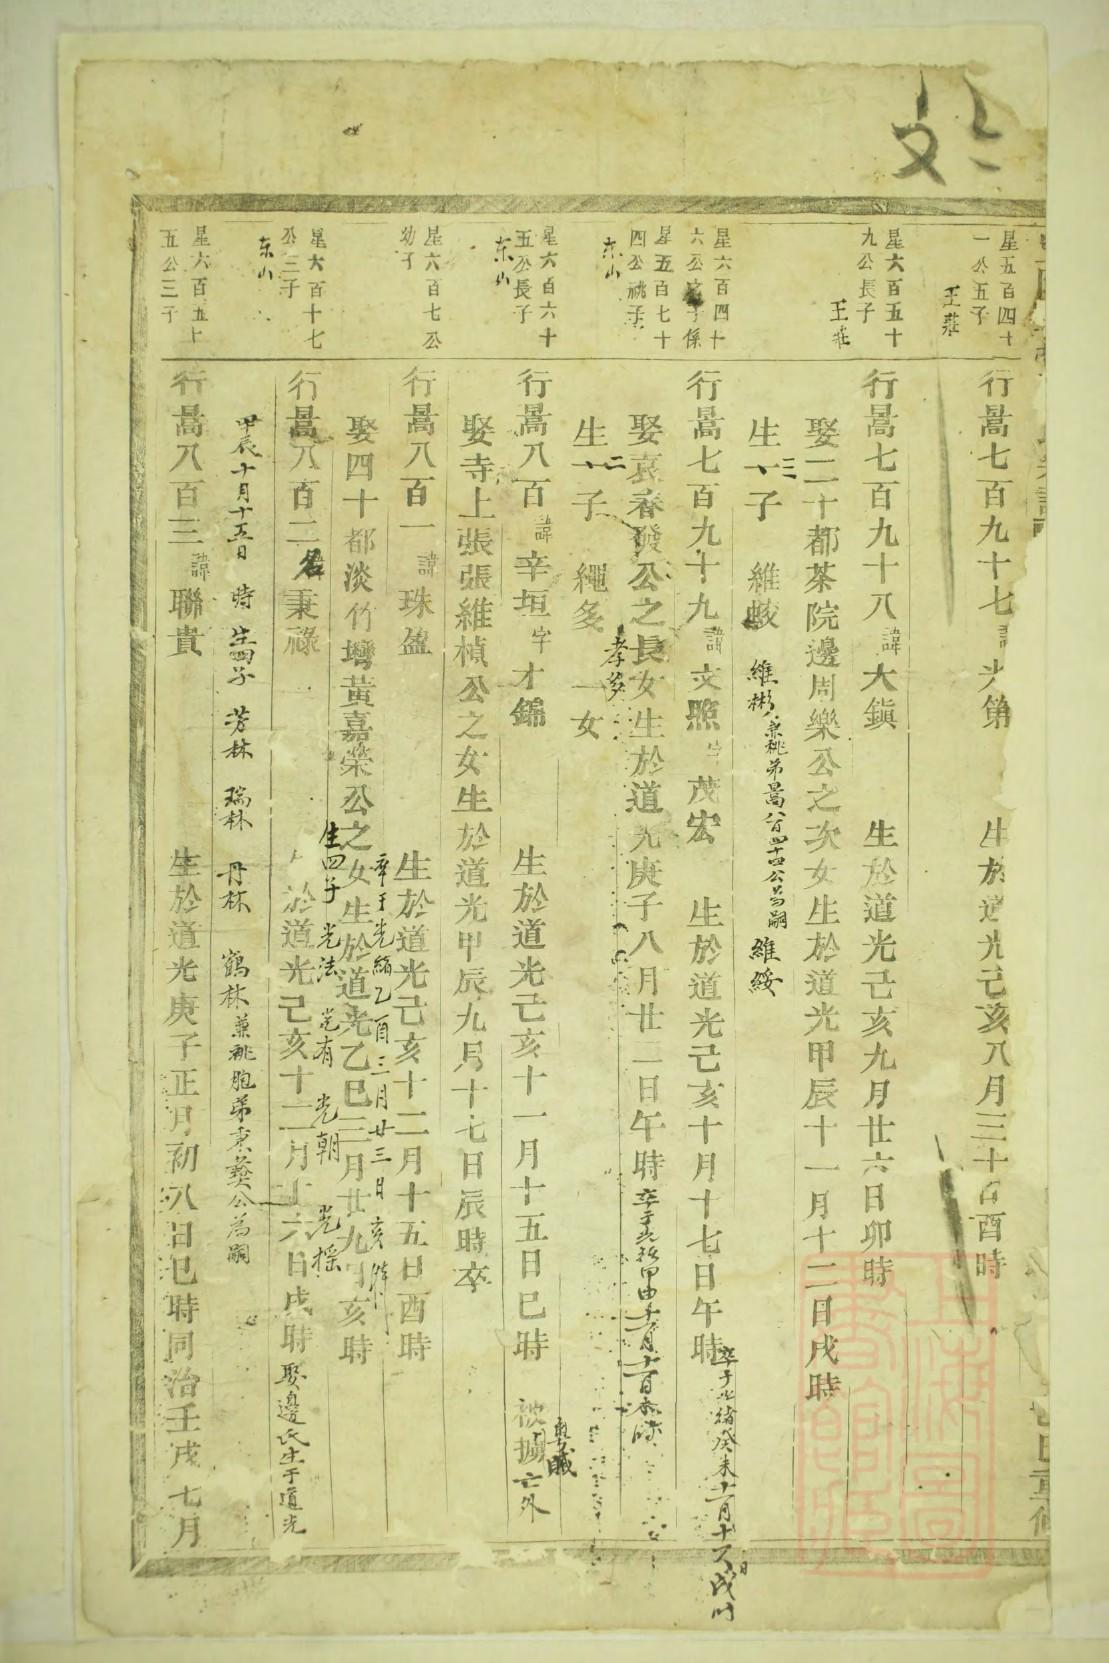 星五百四十
一公五子
王莊
行暠七百九十七
生於道光己亥八月三十日酉時
星六百五十
九公長子
王莊
行暠七百九十八諱大鎮 生於道光己亥九月廿六日卯時
娶二十都茶院邊周樂公之次女生於道光甲辰十一月十二日戌時
生三子 維 維彬 兼祧弟暠八百四十四公為嗣 維綏
星六百四十
六公之子係
星五百七十
四公祧子
东山
行暠七百九十九諱文照字茂宏 生於道光己亥十月十七日午時 卒于光緒癸未十一月十八日戌时
娶袁春發公之長女生於道光庚子八月廿二日午時
生二子 繩多 孝多 一女
星六百六十
五公長子
东山
行暠八百諱辛垣字才錦 生於道光己亥十一月十五日巳時 被擄亡外
娶寺上張張維楨公之女生於道光甲辰九月十七日辰時卒
星六百七公
幼子
行暠八百一諱珠盈 生於道光己亥十二月十五日酉時
卒于光緒乙酉三月廿三日亥時
娶四十都淡竹塆黃嘉榮公之女生於道光乙巳三月廿九日亥時
生四子 光法 光有 光朝 光摇
星六百十七
公三子
东山
行暠八百二名秉祿 於道光己亥十二月十六日戌時 娶邊氏生于道光
甲辰十月十五日 時 生四子 芳林 瑞林 丹林 鶴林 兼祧胞弟秉彝公為嗣
星六百五十
五公三子
行暠八百三諱聯貴 生於道光庚子正月初八日巳時同治壬戌七月